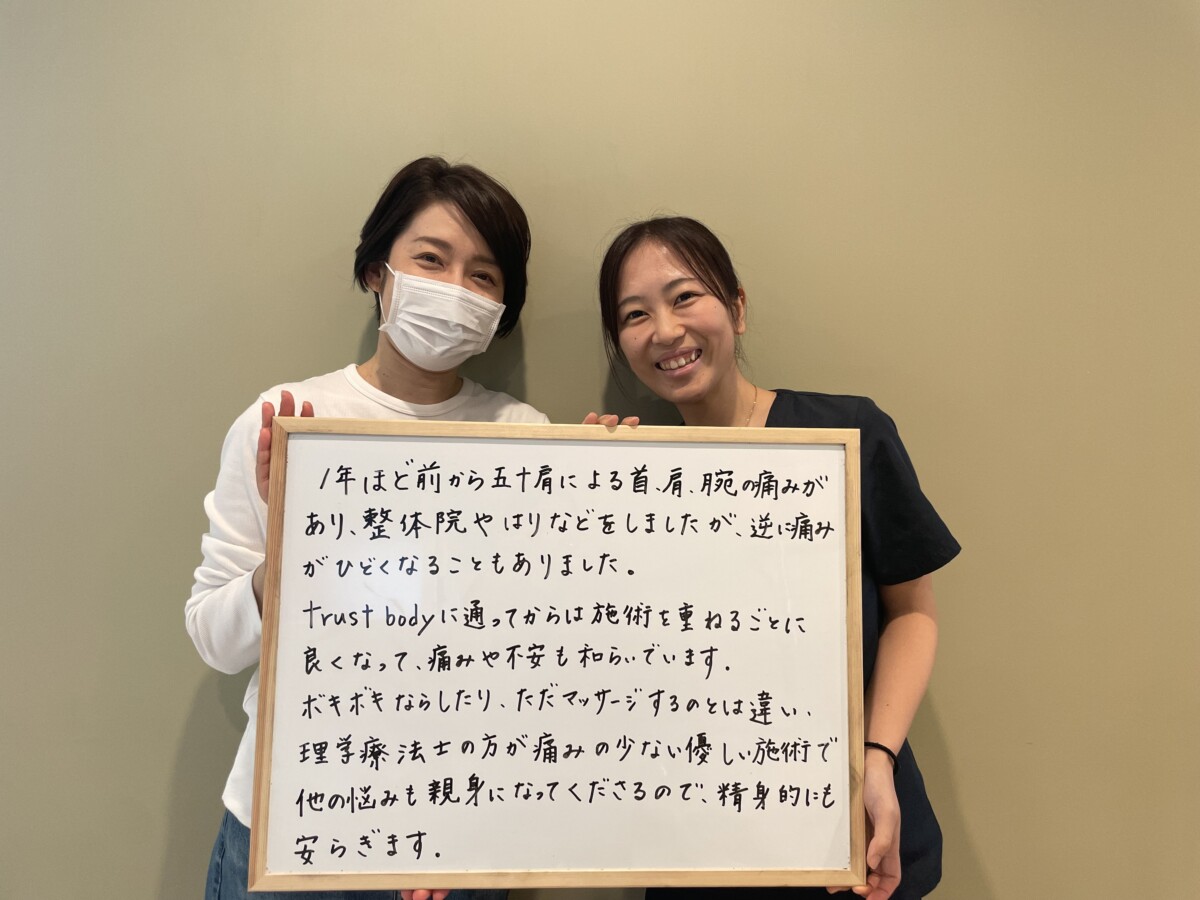 1年ほど前から五十肩による首、肩、腕の痛みが
あり、整体院やはりなどをしましたが、逆に痛み
がひどくなることもありました。
trust bodyに通ってからは施術を重ねるごとに
良くなって、痛みや不安も和らいでいます。
ボキボキならしたり、ただマッサージするのとは違い、
理学療法士の方が痛みの少ない優しい施術で
他の悩みも親身になってくださるので、精身的にも
安らぎます。